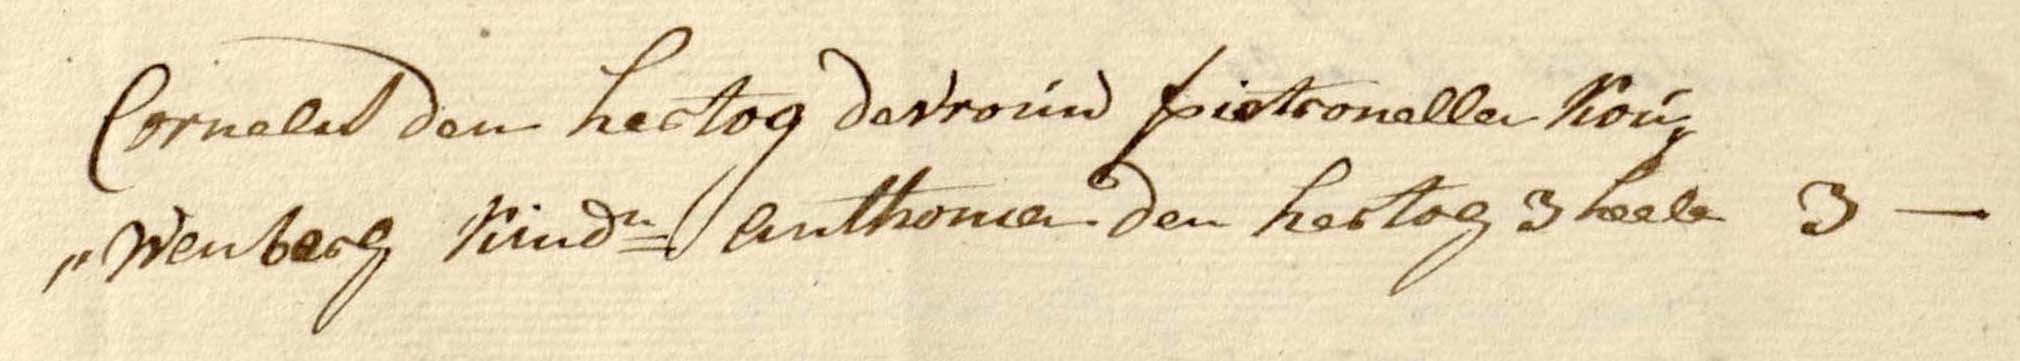 Cornelis den hertog de Vrouw pietronella Kou„
„wenberg Kindn anthonia den hertog 3 heele 3 —